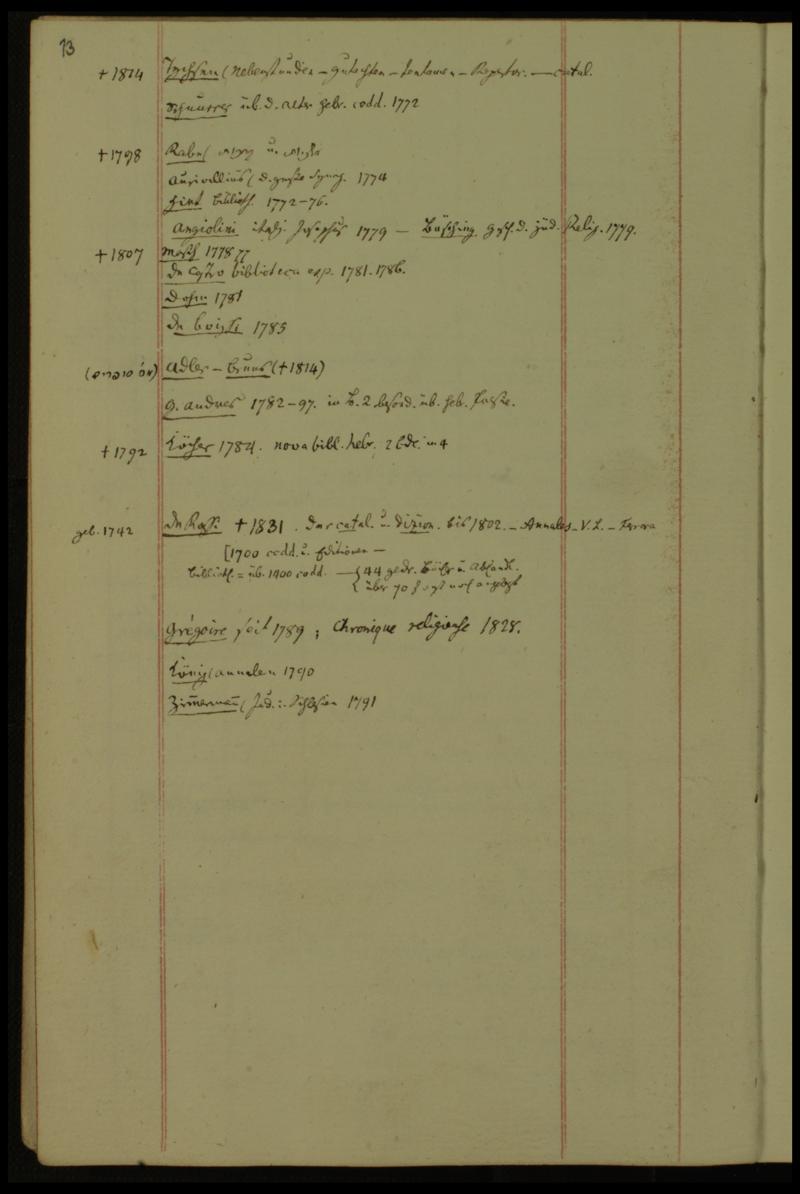 13
+ 1814 Tychsen (Nebenstunden – Gutachten – tentamen – Repertor. – catal.
Schnurrer üb. d. alter hebr. codd. 1772
+ 1798 Rabe u.
Aurivillius ( d. große Synag. 1774
Hirt biblioth. 1772–76.
Angiolini ital. Josephus 1779 — Büsching Gesch. d. jüd. Relig. 1779.
+ 1807 Masch 1778
De Castro biblioteca esp. 1781. 1786.
Dohm 1781
De Boissi 1785
Adler – Bruns (+ 1814)
G. Andres 1782–97. in B. 2 besond. üb. hebr. Poesie.
+ 1792 Köcher 1784. nova bibl. hebr. 2 Bde. in 4
geb. 1742 De Rossi + 1831. Der catal. u. dizion. bis 1802. – Annales – V. L. –
[1700 codd. u. Editionen —
Biblioth. = üb. 1400 codd. — { 44 gedr. Bücher u. Abhandl.
{ über 70
Grégoire seit 1789 ; Chronique religieuse 1828.
König ( annalen 1790
Zimmermann ( Jud. Schlesien 1791